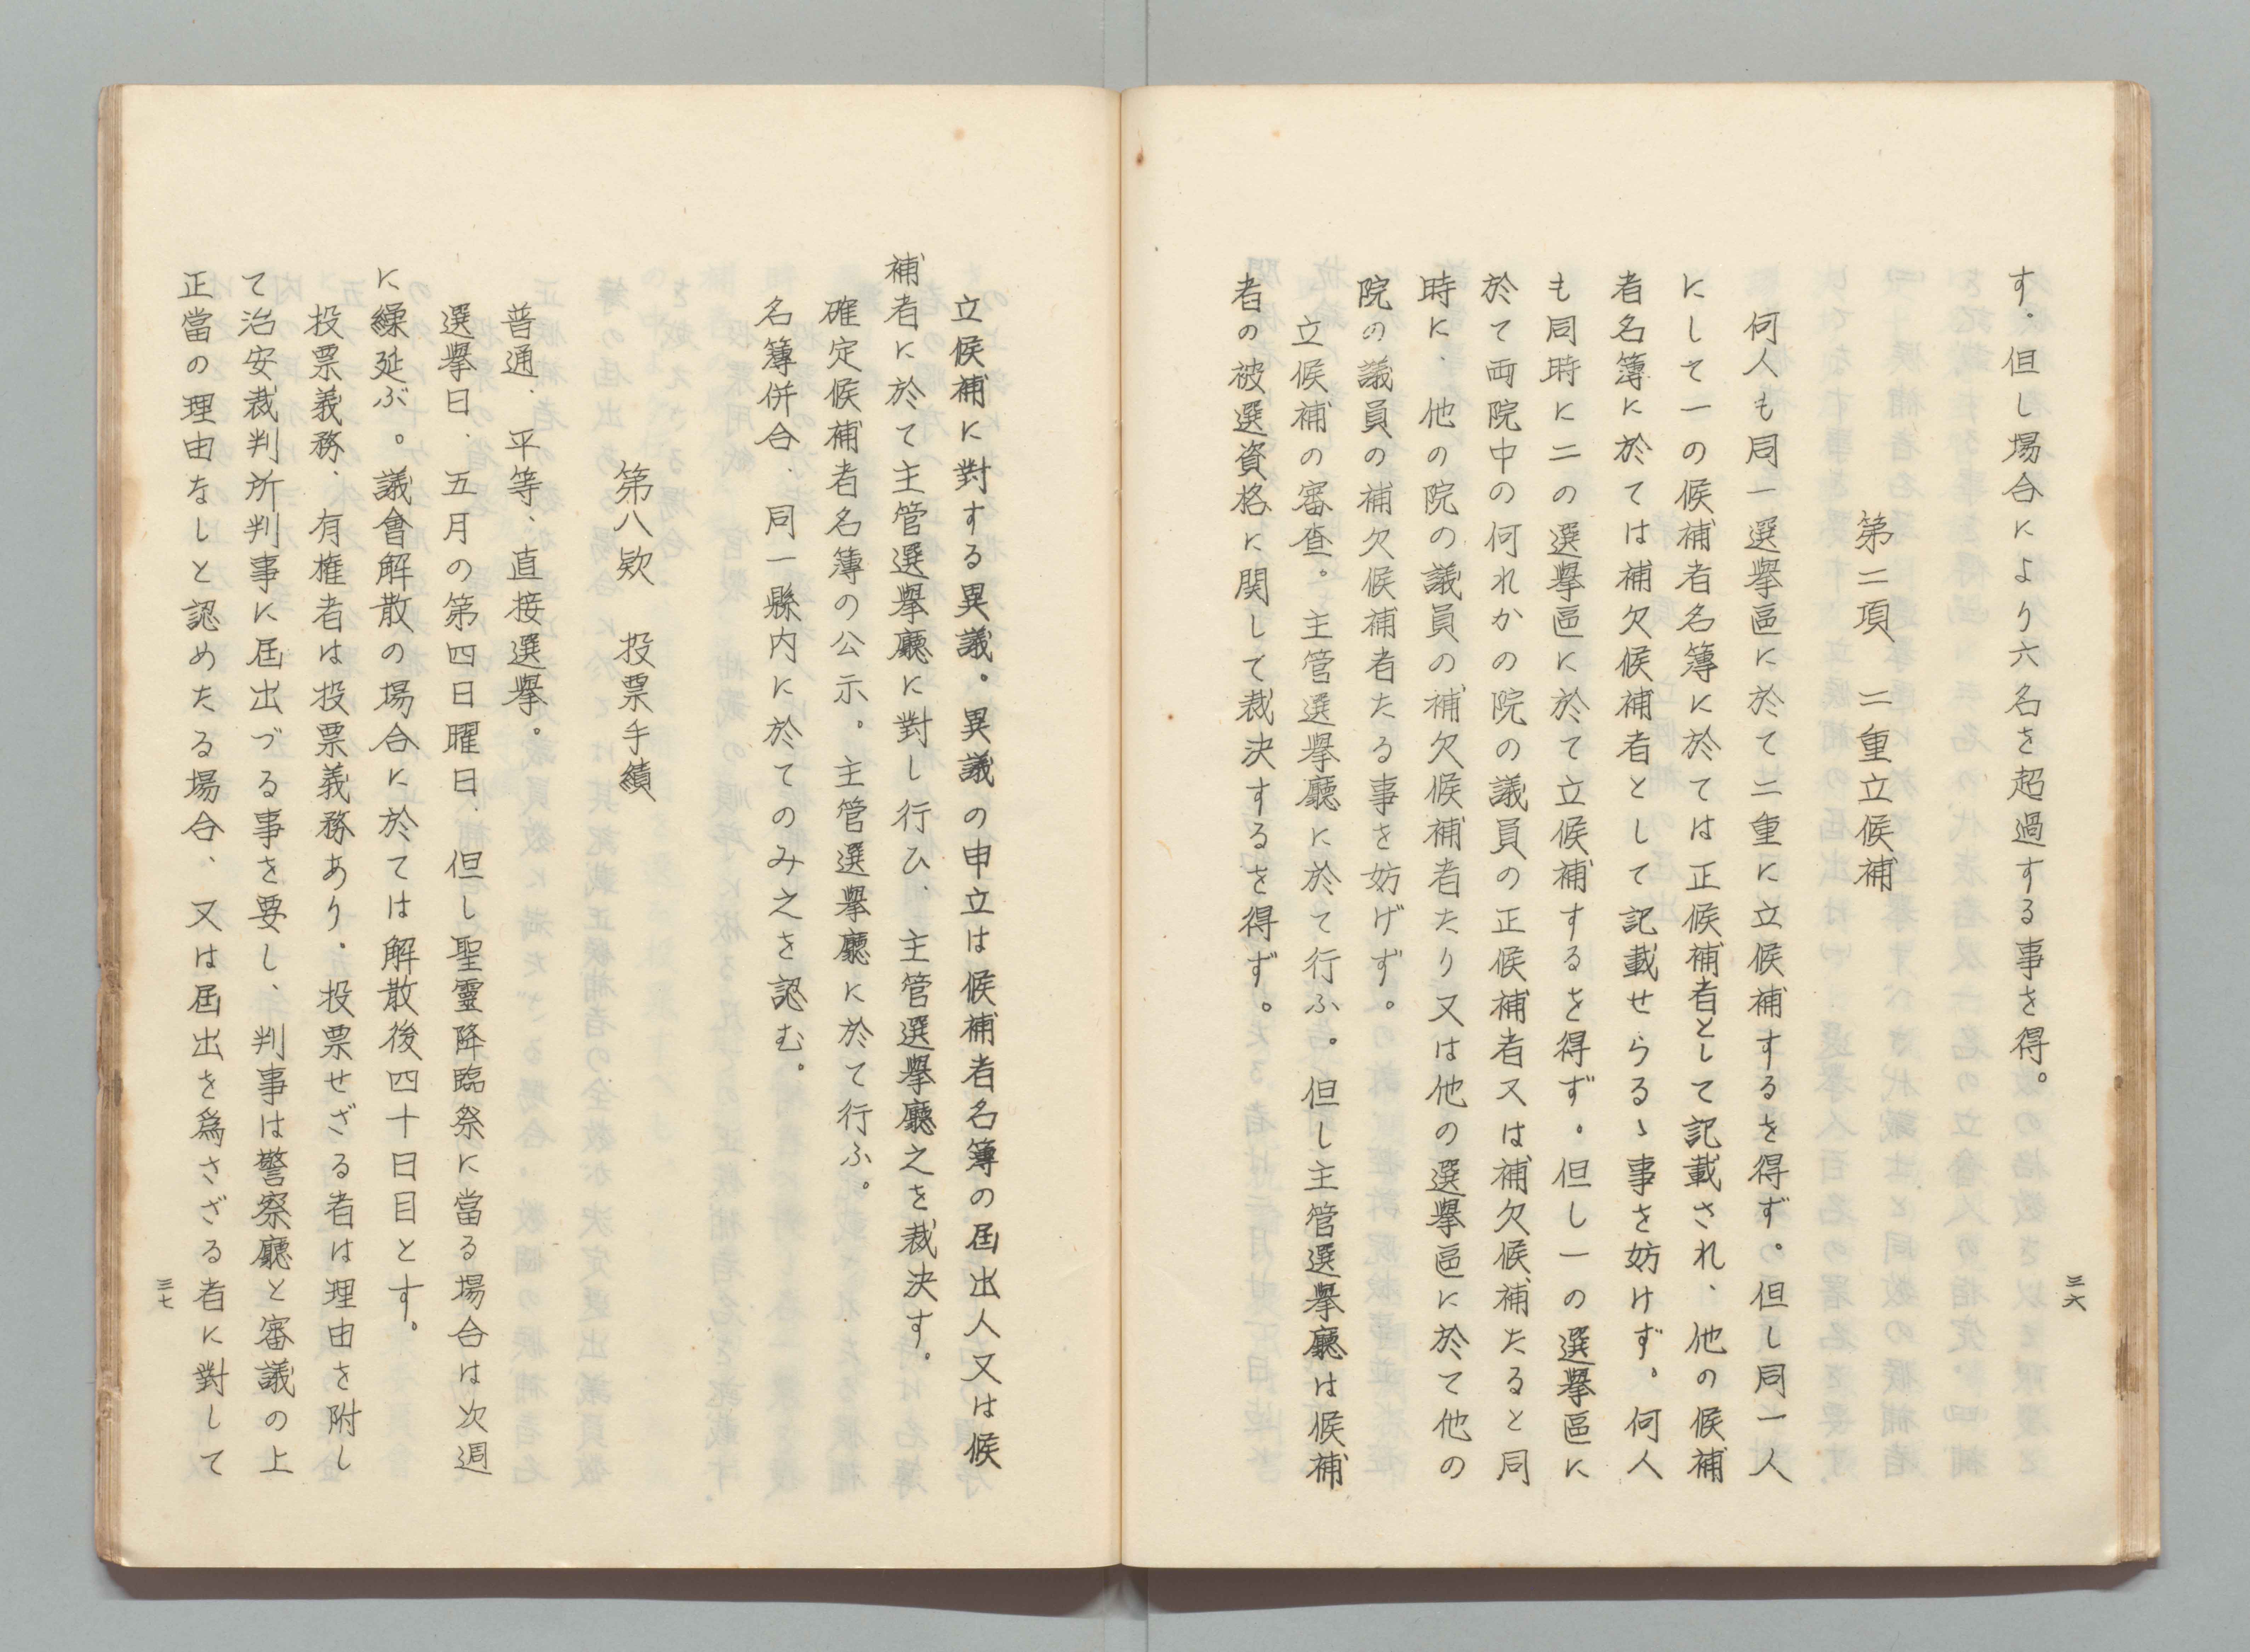 す．但し場合により六名を超過する事を得。
第二項　二重立候補
何人も同一選擧區に於て二重に立候補するを得ず。但し同一人
にして一の候補者名簿に於ては正候補者として記載され、他の候補
者名簿に於ては補欠候補者として記載せらるゝ事を妨けず。何人
も同時に二の選擧區に於て立候補するを得ず。但し一の選擧區に
於て両院中の何れかの院の議員の正候補者又は補欠候補たると同
時に、他の院の議員の補欠候補者たり又は他の選擧區に於て他の
院の議員の補欠候補者たる事を妨げず。
立候補の審査。主管選擧廳に於て行ふ。但し主管選擧廳は候補
者の被選資格に関して裁決するを得ず。
三六
立候補に對する異議。異議の申立は候補者名簿の屆出人又は候
補者に於て主管選擧廳に對し行ひ、主管選擧廳之を裁決す。
確定候補者名簿の公示。主管選擧廳に於て行ふ。
名簿併合．同一縣内に於てのみ之を認む。
第八欵　投票手續
普通．平等、直接選擧。
選擧日．五月の第四日曜日．但し聖靈降臨祭に當る場合は次週
に繰延ぶ。議會解散の場合に於ては解散後四十日目とす。
投票義務．有権者は投票義務あり．投票せざる者は理由を附し
て治安裁判所判事に屆出づる事を要し、判事は警察廳と審議の上
正當の理由なしと認めたる場合、又は屆出を爲さざる者に對して
三七